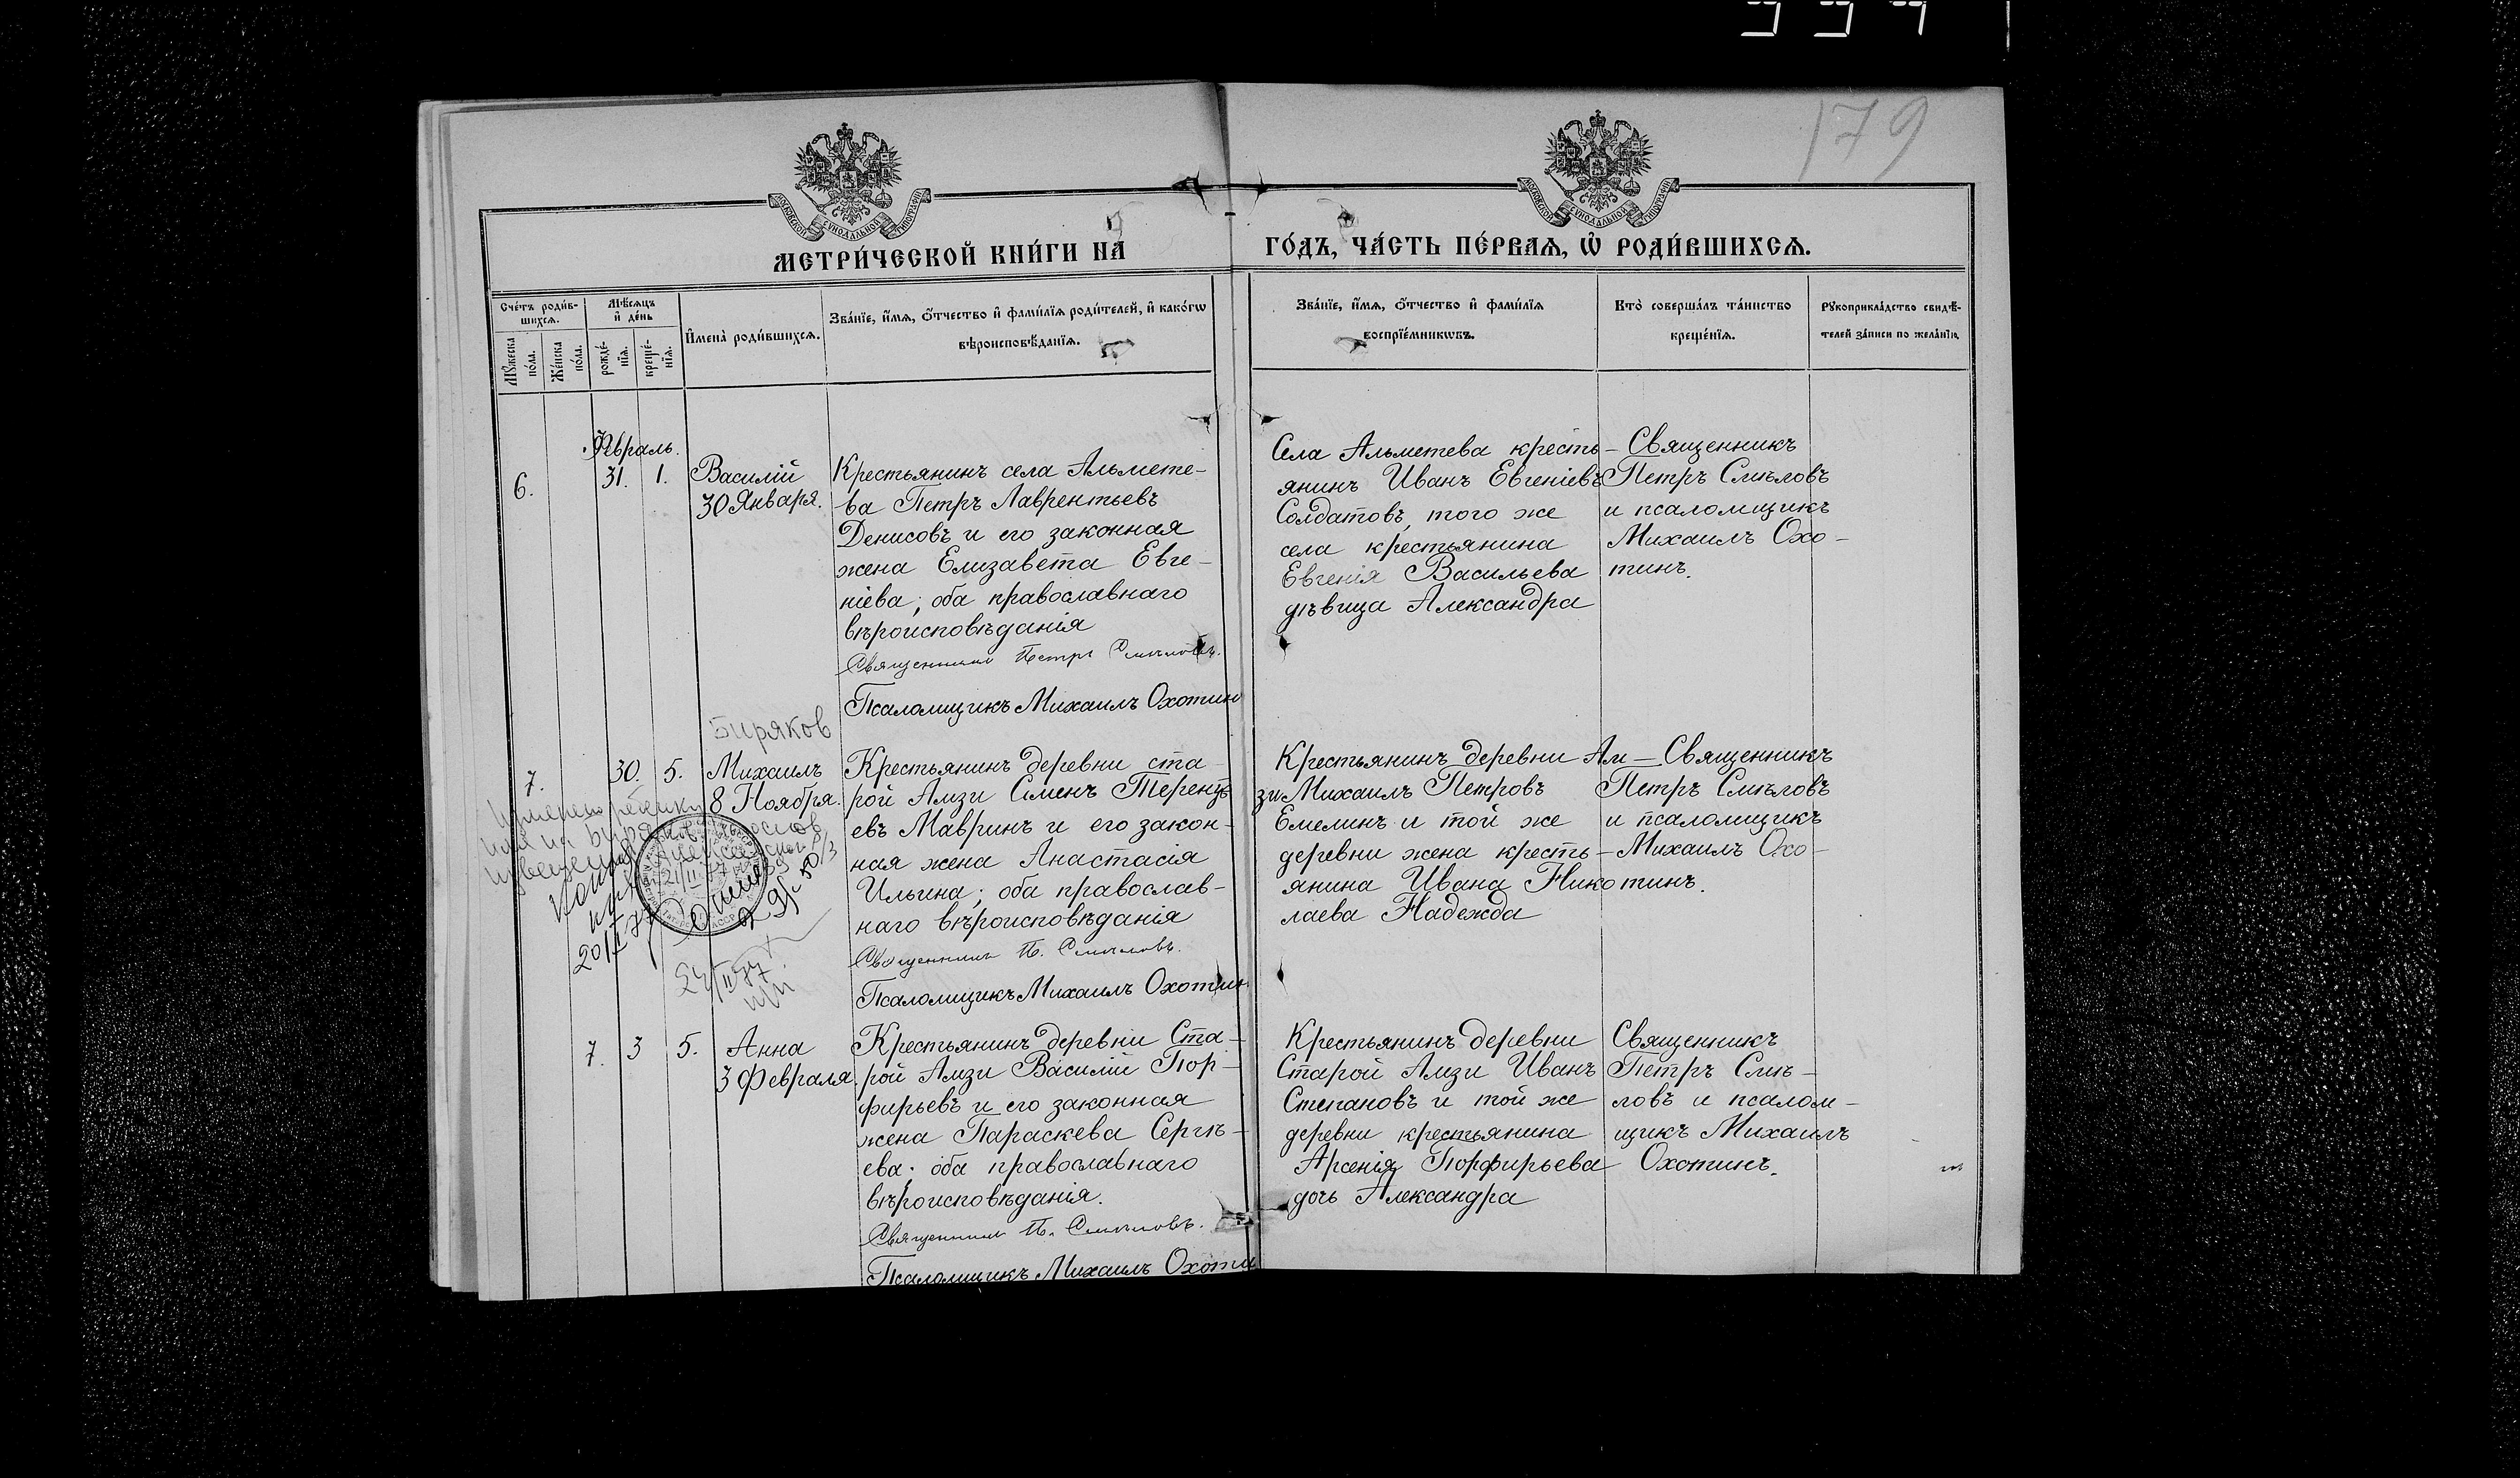 179
МОСКОВСКОЙ СѴНОДАЛЬНОЙ ТИПОГРАФІИ
МОСКОВСКОЙ СѴНОДАЛЬНОЙ ТИПОГРАФІИ
МЕТРИ́ЧЕСКОЙ КНИ́ГИ НА̀ ГО́ДЪ, ЧА́СТЬ ПЕ́РВАѦ, Ѽ РОДИ́ВШИХСѦ.
Сче́тъ роди́в-
шихсѧ.
Мꙋ́жеска
по́ла.
Же́нска
по́ла.
Мѣ́сѧцъ
и҆ де́нь
рожде́-
нїѧ.
креще́-
нїѧ.
И҆мена̀ роди́вшихсѧ.
Зва́нїе, и҆́мѧ, ѻ҆́тчество и҆ фамѝлїѧ роди́телей, и҆ како́гѡ
вѣроисповѣ́данїѧ.
Зва́нїе, и҆́мѧ, ѻ҆́тчество и҆ фами́лїѧ
воспрїе́мникѡвъ.
Кто̀ соверша́лъ та́инство
креще́нїѧ.
Рꙋкоприкла́дство свидѣ́-
телей за́писи по жела́нїю.
Февраль.
6. 31. 1.
Василій
30 Января.
Крестьянинъ села Альмете-
ва Петръ Лаврентьевъ
Денисовъ и его законная
жена Елизавета Евге-
ніева; оба православнаго
вѣроисповѣданія
Священникъ Петръ Смѣловъ.
Псаломщикъ Михаилъ Охотин
Села Альметева кресть-
янинъ Иванъ Евгеніевъ
Солдатовъ, того же
села крестьянина
Евгенія Васильева
дѣвица Александра
Священникъ
Петръ Смѣловъ
и псаломщикъ
Михаилъ Охо-
тинъ.
Биряков
7. 30. 5.
Михаилъ
8 Ноября.
Крестьянинъ деревни ста-
рой Амзи Сименъ Теренть
евъ Мавринъ и его закон-
ная жена Анастасія
Ильина; оба православ-
наго вѣроисповѣданія
Священникъ П. Смѣловъ.
Псаломщикъ Михаилъ Охотин
Крестьянинъ деревни Ам-
зи Михаилъ Петровъ
Емелинъ и той же
деревни жена кресть-
янина Ивана Нико
лаева Надежда
Священникъ
Петръ Смѣловъ
и псаломщикъ
Михаилъ Охо-
тинъ.
7. 3 5.
Анна
3 Февраля.
Крестьянинъ деревни Ста-
рой Амзи Василій Пор-
фирьевъ и его законная
жена Параскева Сергѣ-
ева; оба православнаго
вѣроисповѣданія.
Священникъ П. Смѣловъ.
Псаломщикъ Михаилъ Охоти
Крестьянинъ деревни
Старой Амзи Иванъ
Степановъ и той же
деревни крестьянина
Арсенія Порфирьева
дочь Александра
Священникъ
Петръ Смѣ-
ловъ и псалом-
щикъ Михаилъ
Охотинъ.